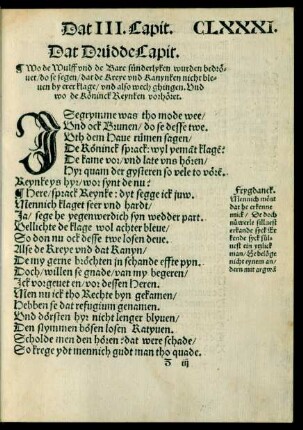 Dat III. Capit. CLXXXI.
Dat Drüdde Capit.
¶ Wo de Wulff vnd de Bare sünderlyken wurden bedrö-
uet/ do se segen/ dat de Kreye vnd Kanynken nicht ble-
uen by erer klage/ vnd also wech ghingen. Vnd
wo de Köninck Reynken vorhöret.
ISegrymme was tho mode wee/
Vnd ock Brunen/ do se desse twe.
Vth dem Haue rümen sagen/
De Köninck sprack: wyl yemāt klagē:
De kame vor/ vnd late vns hören/
Hyr quam der gysteren so vele to vörē.
Reynke ys hyr/ wor synt de nu:
¶ Here/ sprack Reynke: dyt segge ick juw.
Mennich klaget seer vnd hardt/
Ja/ sege he yegenwerdich syn wedder part.
Vellichte de klage wol achter bleue/
So don nu ock desse twe losen deue.
Alse de Kreye vnd dat Kanyn/
De my gerne bröchten jn schande effte pyn.
Doch/ willen se gnade/ van my begeren/
Ick vorgeuet en/ vor dessen Heren.
Men nu ick tho Rechte byn gekamen/
Hebben se dat refugium genamen.
Vnd dörsten hyr nicht lenger blyuen/
Den slymmen bösen losen Katyuen.
Scholde men den hören: dat were schade/
So krege ydt mennich gudt man tho quade.
Freygdanck.
Mennich mēnt
dat he erkenne
mick/ Se doch
nüwerle
erkande
kende sick sül-
uest ein ytlick
man/ He
nicht eynem an-
dern mit argwā
iij